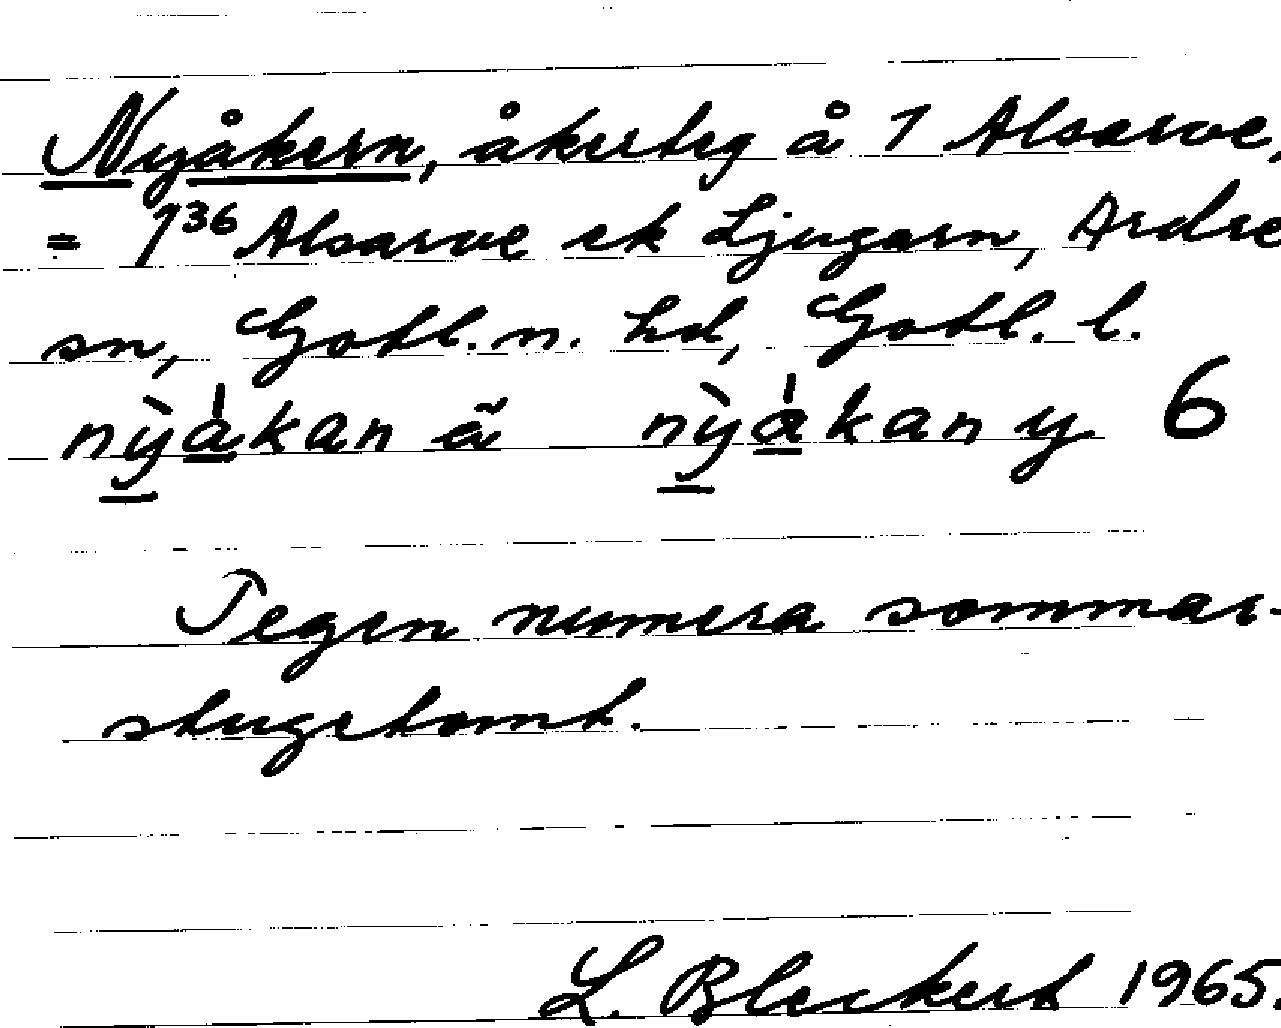 Nyåkern, åkerteg å 1 Alsarve,
= 1³⁶ Alsarve ek Ljugarn, Ardre
sn, Gotl. n. hd, Gotl. l.
nỳákan ã nỳákan y 6
Tegen numera sommar-
stugetomt.
L. Bleckert 1965.